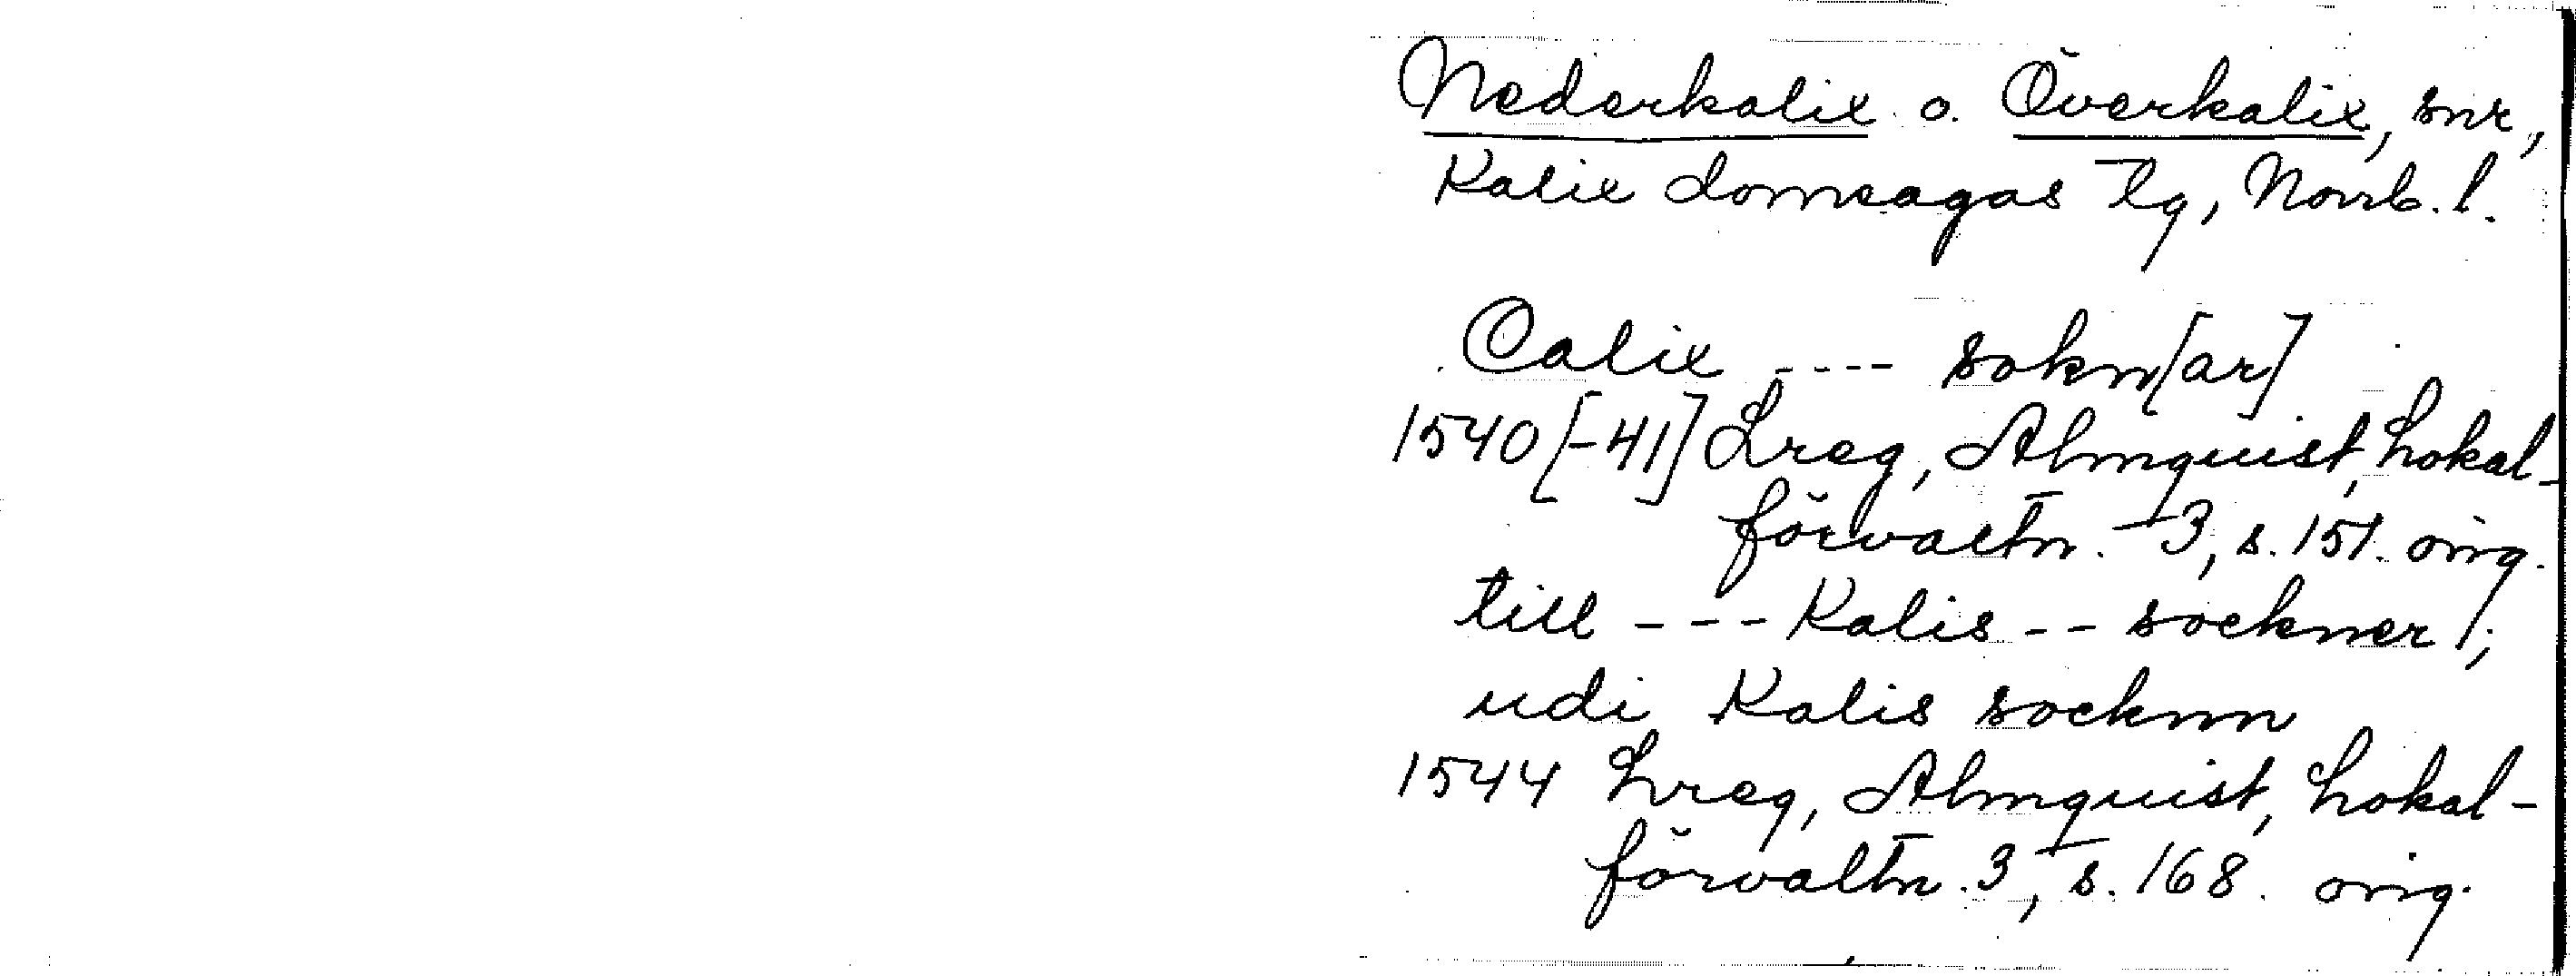 Nederkalix o. Överkalix, snr,
Kalix domsagas tg, Norrb. l.
Calix ---- sokn[ar]
1540[-41] Lreg, Almquist, Lokal-
förvaltn. 3, s. 151. orig.
till --- Kalis -- sockner;
udi Kalis socknn
1544 Lreg, Almquist, Lokal-
förvaltn. 3, s. 168. orig.